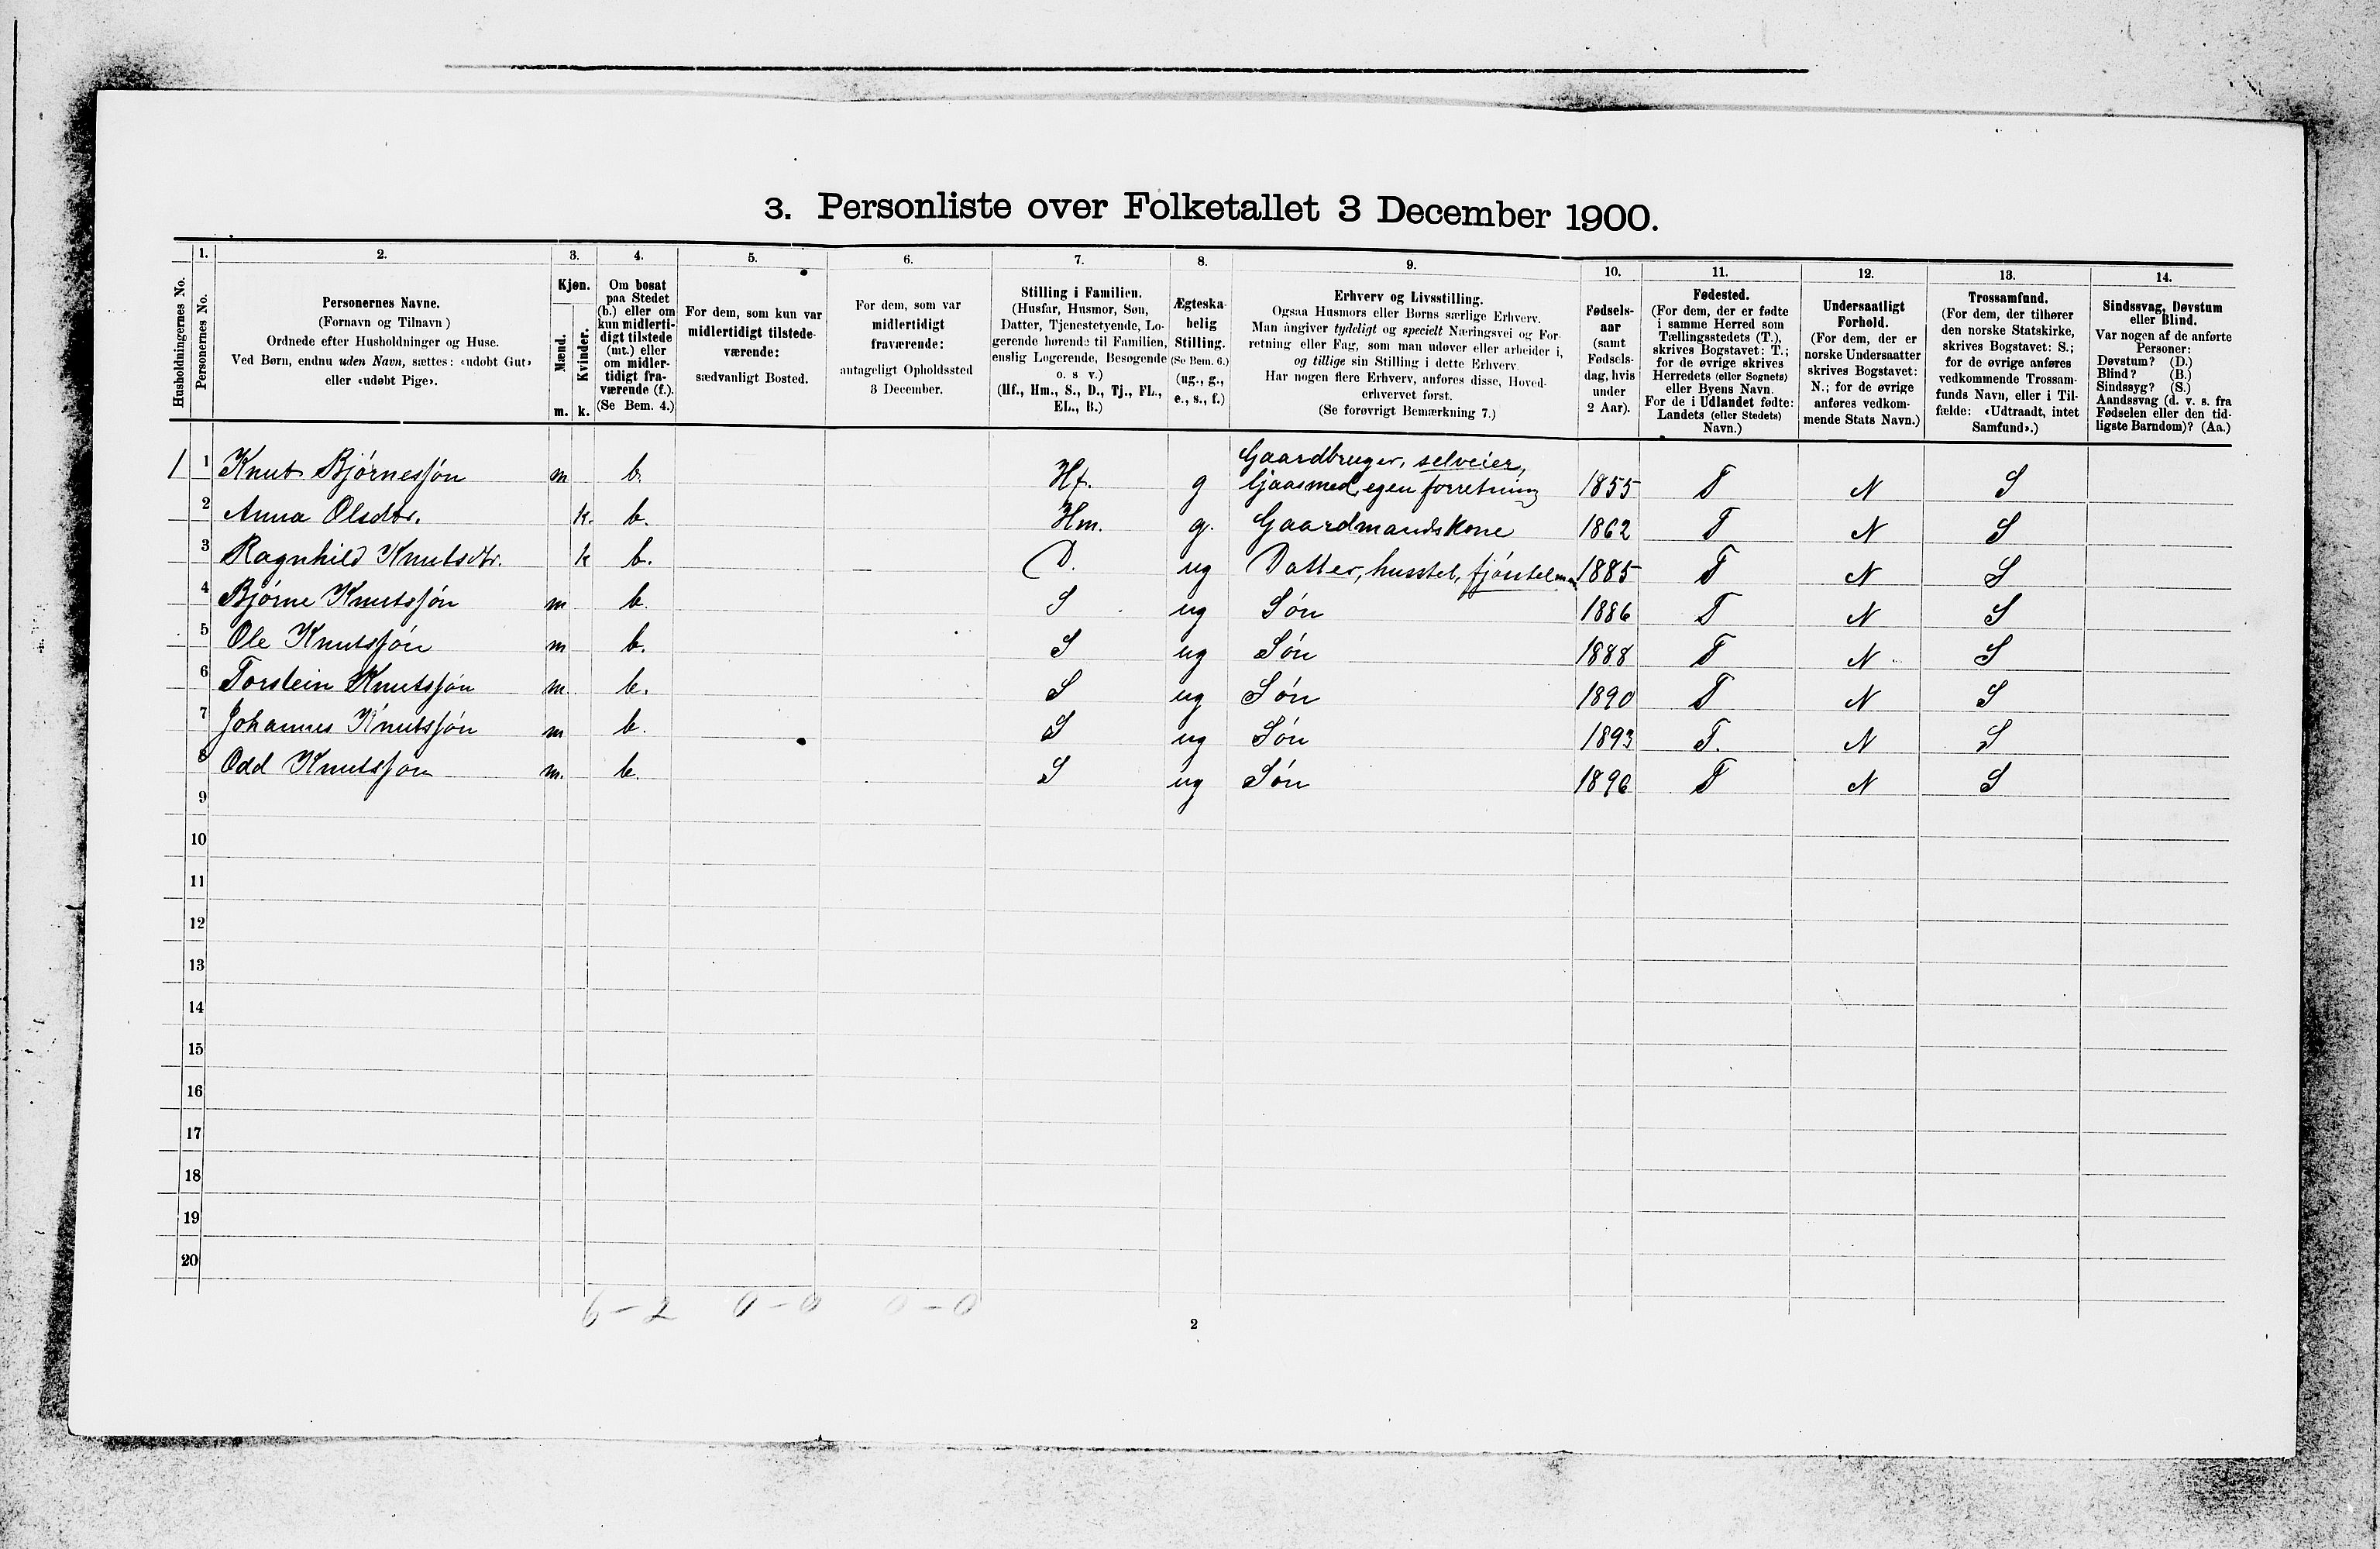 3. Personliste over Folketallet 3 December 1900.
1. 2. 3. 4. 5. 6. 7. 8. 9. 10. 11. 12. 13. 14.
Husholdningernes No.
Personernes No.
Personernes Navne.
(Fornavn og Tilnavn)
Ordnede efter Husholdninger og Huse.
Ved Børn, endnu uden Navn, sættes: «udøbt Gut»
eller «udøbt Pige».
Kjøn.
Mænd.
Kvinder.
m. k.
Om bosat
paa Stedet
(b.) eller om
kun midlerti-
digt tilstede
(mt.) eller
om midler-
tidigt fra-
værende (f.).
(Se Bem. 4.)
For dem, som kun var
midlertidigt tilstede-
værende:
sædvanligt Bosted.
For dem, som var
midlertidigt
fraværende:
antageligt Opholdssted
3 December.
Stilling i Familien.
(Husfar, Husmor, Søn,
Datter, Tjenestetyende, Lo-
gerende hørende til Familien,
enslig Logerende, Besøgende
o. s. v.)
(Hf., Hm., S., D., Tj., FL.,
EL., B.)
Ægteska-
belig
Stilling.
(Se Bem. 6.)
(ug., g.,
e., s., f.)
Erhverv og Livsstilling.
Ogsaa Husmors eller Børns særlige Erhverv.
Man angiver tydeligt og specielt Næringsvei og For-
retning eller Fag, som man udøver eller arbeider i,
og tillige sin Stilling i dette Erhverv.
Har nogen flere Erhverv, anføres disse, Hoved-
erhvervet først.
(Se forøvrigt Bemærkning 7.)
Fødsels-
aar
(samt
Fødsels-
dag, hvis
under
2 Aar).
Fødested.
(For dem, der er fødte
i samme Herred som
Tællingsstedets (T.),
skrives Bogstavet: T.;
for de øvrige skrives
Herredets (eller Sognets)
eller Byens Navn.
For de i Udlandet fødte:
Landets (eller Stedets)
Navn.)
Undersaatligt
Forhold.
(For dem, der er
norske Undersaatter
skrives Bogstavet:
N.; for de øvrige
anføres vedkom-
mende Stats Navn.)
Trossamfund.
(For dem, der tilhører
den norske Statskirke,
skrives Bogstavet: S.;
for de øvrige anføres
vedkommende Trossam-
funds Navn, eller i Til-
fælde: «Udtraadt, intet
Samfund».)
Sindssvag, Døvstum
eller Blind.
Var nogen af de anførte
Personer:
Døvstum? (D.)
Blind? (B.)
Sindssyg? (S.)
Aandssvag (d. v. s. fra
Fødselen eller den tid-
ligste Barndom)? (Aa.)
Gaardbruger, selveier,
1 1 Knut Bjørnessøn m b. Hf. g egen forretning 1855 T N S
2 Anna Olsdtr. k. b. Hm. g. Gaardmandskone 1862 T N S
3 Ragnhild Knutsdtr. k b. D. ug Datter, husstel, 1885 T N S
4 Bjørne Knutssøn m b. S ug Søn 1886 T N S
5 Ole Knutssøn m b. S ug Søn 1888 T N S
6 Torstein Knutssøn m. b. S ug Søn 1890 T N S
7 Johannes Knutssøn m b. S ug Søn 1893 T. N S
8 Odd Knutssøn m. b. S ug Søn 1896 T N S
9
10
11
12
13
14
15
16
17
18
19
20
6 – 2 0 – 0 0 – 0
2